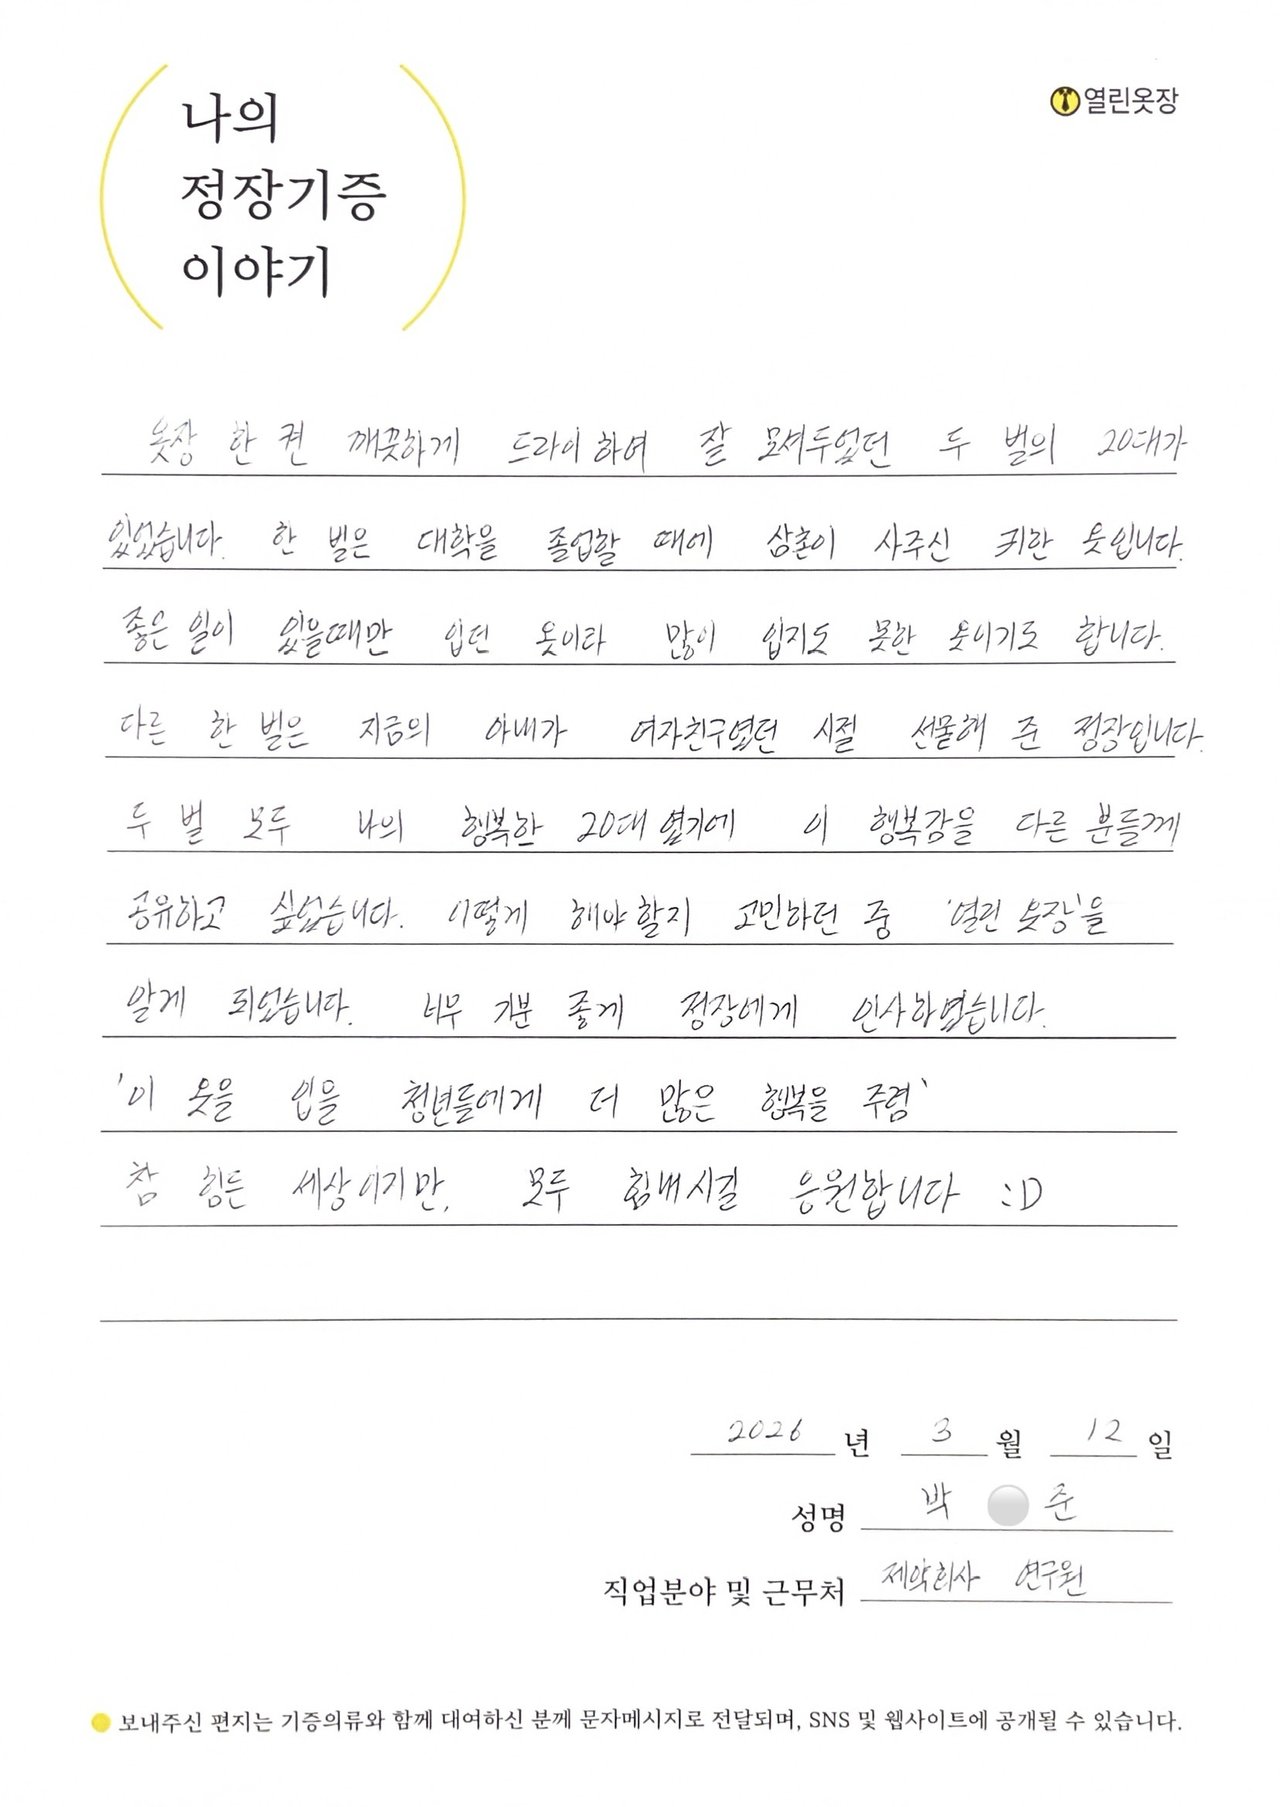 나의
정장기증
이야기
열린옷장
옷장 한 켠 깨끗하게 드라이하여 잘 모셔두었던 두 벌의 20대가
있었습니다. 한 벌은 대학을 졸업할 때에 삼촌이 사주신 귀한 옷입니다.
좋은 일이 있을때만 입던 옷이라 많이 입지도 못한 옷이기도 합니다.
다른 한 벌은 지금의 아내가 여자친구였던 시절 선물해 준 정장입니다.
두 벌 모두 나의 행복한 20대 였기에 이 행복감을 다른 분들께
공유하고 싶었습니다. 어떻게 해야할지 고민하던 중 '열린 옷장'을
알게 되었습니다. 너무 기분 좋게 정장에게 인사하였습니다.
'이 옷을 입을 청년들에게 더 많은 행복을 주렴'
참 힘든 세상이지만, 모두 힘내시길 응원합니다 :D
2026 년 3 월 12 일
성명 박 준
직업분야 및 근무처 제약회사 연구원
보내주신 편지는 기증의류와 함께 대여하신 분께 문자메시지로 전달되며, SNS 및 웹사이트에 공개될 수 있습니다.